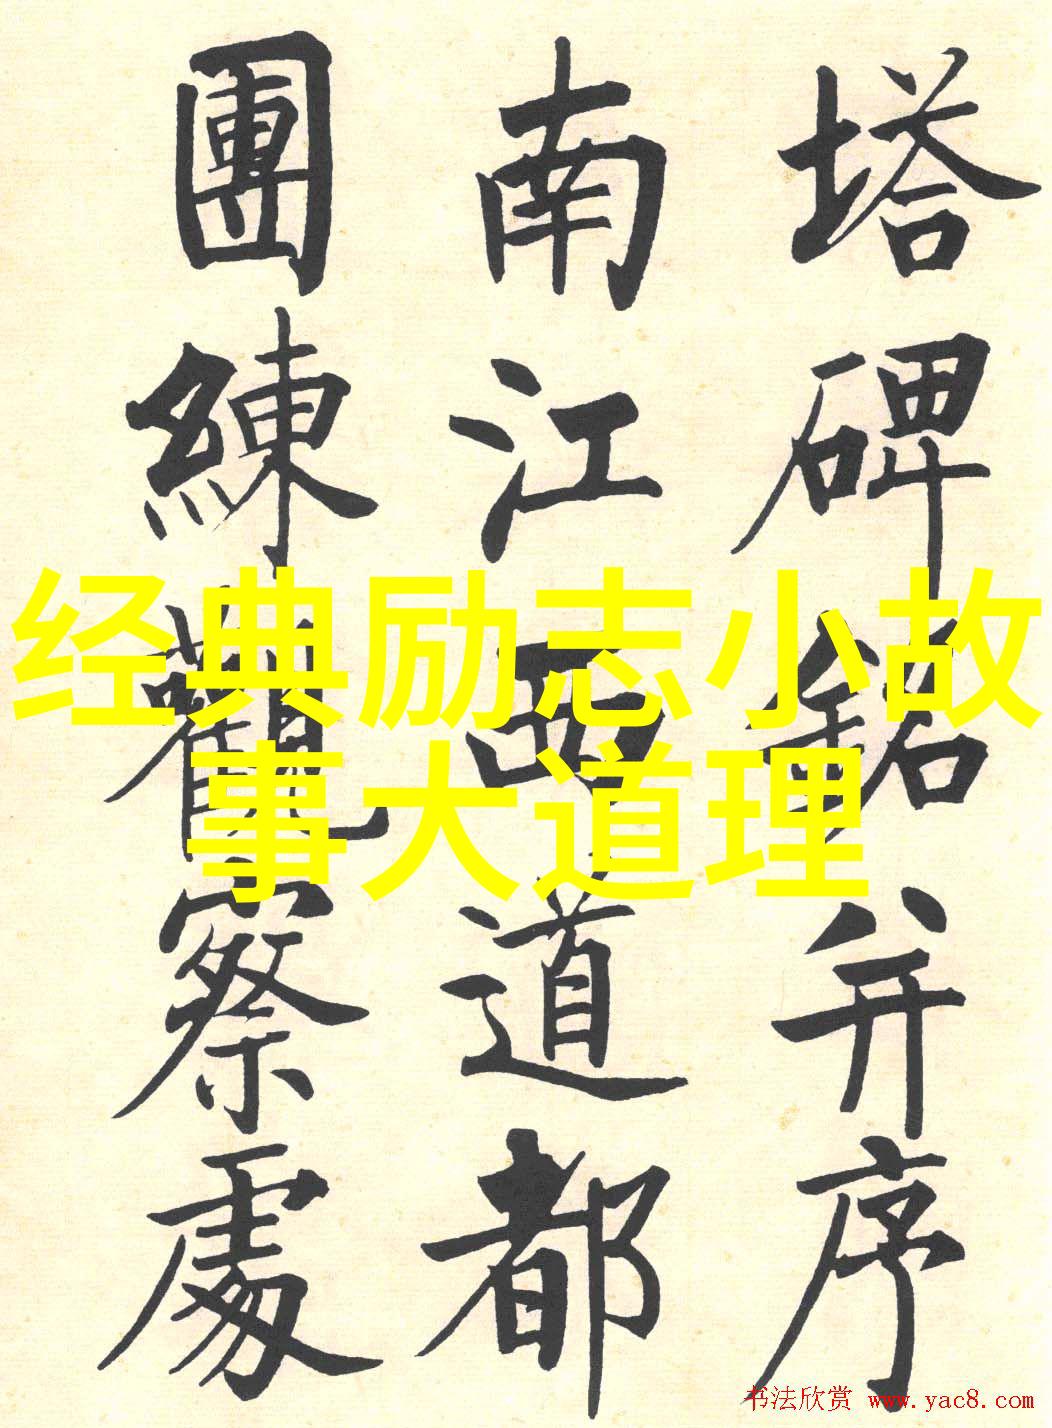 塔碑銘并序
南江西道都
團練觀察處
经典励志小故
事大道理
书法欣赏 www.yac8.com